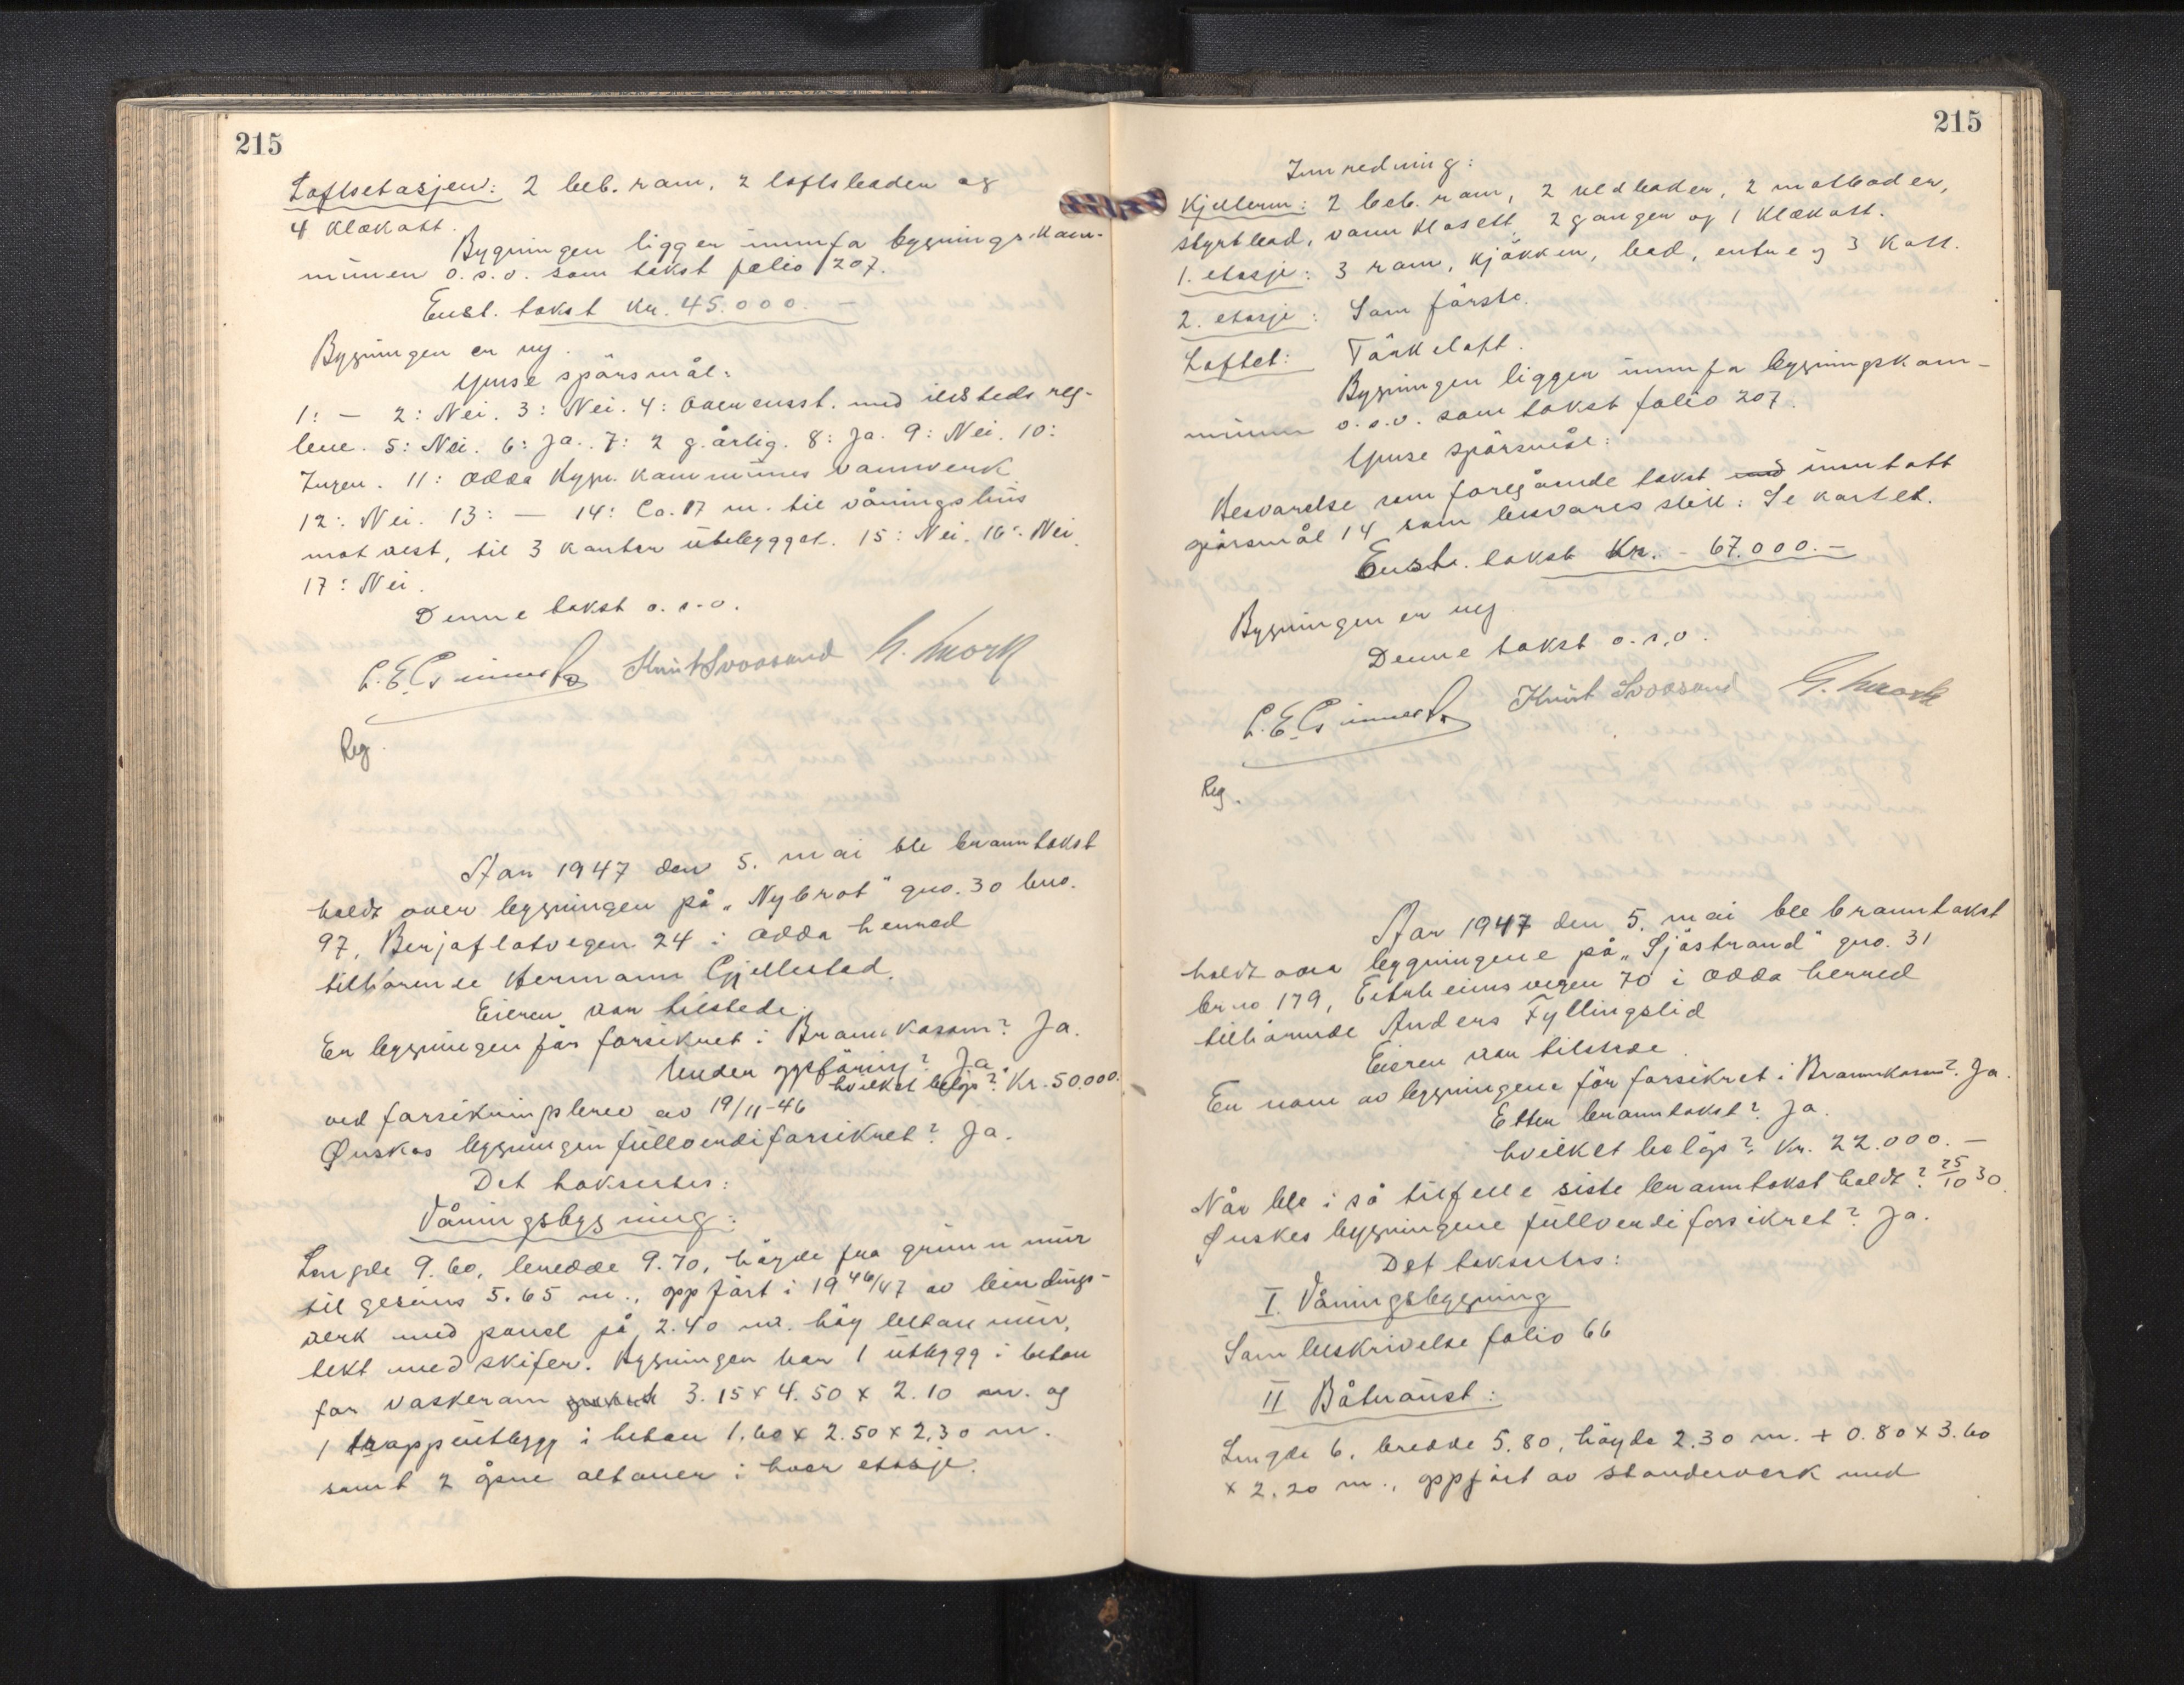 215
Loftsetasjen: 2 beb. rom, 2 loftsboder og
4 klækott.
Bygningen ligger innnfa bygningskom-
munen o.s.v. som takst folio 207.
Enst. takst kr. 45.000.-
Bygningen er ny.
Ymse spørsmål:
1: - 2: Nei. 3: Nei. 4: Overensst. med ildsteds reg-
lene. 5: Nei. 6: Ja. 7: 2 g. årlig. 8: Ja. 9: Nei. 10:
Ingen. 11: Odda bygn. kommunes vannverk
12: Nei. 13: - 14: Ca. 17 m. til våningshus
mot vest, til 3 kanter utebygget. 15: Nei. 16: Nei.
17: Nei.
Denne takst o.s.v.
Knut Svoosand
Reg.
Aar 1947 den 5. mai ble branntakst
holdt over bygningen på „Nybrot" gno. 30 bno.
97, Berjaflotvegen 24 i Odda herred
tilhørende Hermann Gjellestad.
Eieren var tilstede.
Er bygningen før forsikret i Brannkassen? Ja.
Under oppføring? Ja.
hvilket beløp? Kr. 50.000.
ved forsikringsbrev av 19/11-46
Ønskes bygningen fullverdiforsikret? Ja.
Det takseres:
Våningsbygning:
Lengde 9.60, bredde 9.70, høyde fra grunnmur
til gesims 5.65 m., oppført i 1946/47 av bindings-
verk med panel på 2.40 m. høg betonmur,
tekt med skifer. Bygningen har 1 utbygg i beton
for vaskerom 3.15 x 4.50 x 2.10 m. og
1 trappeutbygg i beton 1.60 x 2.50 x 2.30 m.
samt 2 åpne altaner i hver etasje.
215
Innredning:
Kjelleren: 2 beb. rom, 2 vedboder, 2 matboder,
styrtbad, vannklosett, 2 ganger og 1 klækott.
1. etasje: 3 rom, kjøkken, bad, entre og 3 kott.
2. etasje: Som første.
Loftet: Tørkeloft.
Bygningen ligger innnfa bygningskom-
munen o.s.v. som takst folio 207.
Ymse spørsmål:
Besvarelse som foregående takst med unntatt
spørsmål 14 som besvares slik: Se kartet.
Enst. takst Kr. - 67.000.-
Bygningen er ny
Denne takst o.s.v.
Knut Svoosand
Reg.
Aar 1947 den 5. mai ble branntakst
holdt over bygningene på „Sjøstrand" gno. 31
brno 179, Eitrheimsvegen 70 i Odda herred
tilhørende Anders Fyllingslid
Eieren var tilstede.
Er noen av bygningene før forsikret i Brannkassen? Ja.
Etter branntakst? Ja.
hvilket beløp? Kr. 22.000.-
Når ble i så tilfelle siste branntakst holdt? 25/10 30.
Ønskes bygningene fullverdiforsikret? Ja.
Det takseres:
I. Våningsbygning
Som beskrivelse folio 66
II Båtnaust:
Lengde 6, bredde 5.80, høyde 2.30 m. + 0.80 x 3.60
x 2.20 m., oppført av standerverk med